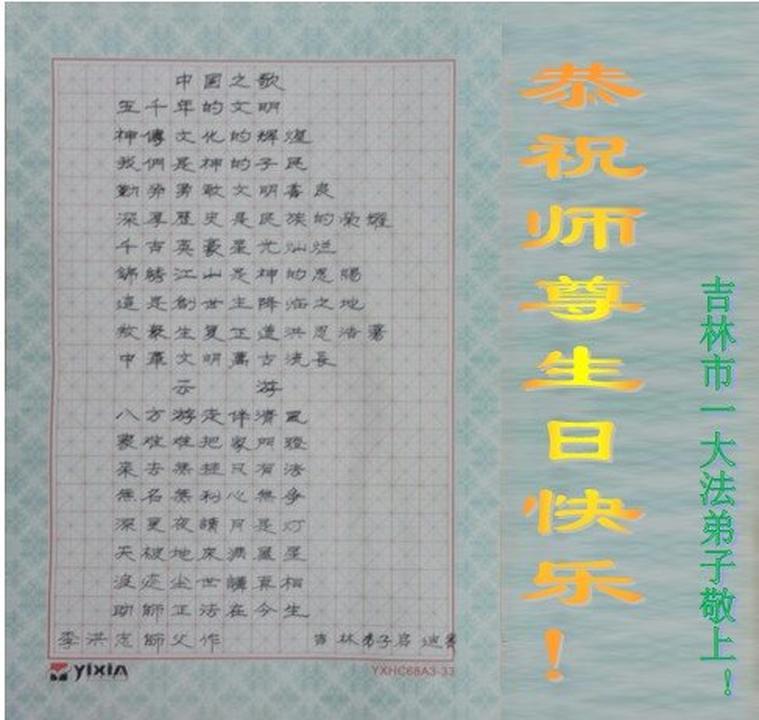 中国之歌
五千年的文明
神傳文化的輝煌
我們是神的子民
勤劳勇敢文明善良
深厚歷史是民族的榮耀
千古英豪星光灿烂
錦綉江山是神的恩賜
這是創世主降临之地
救眾生复正道洪恩浩蕩
中華文明萬古流長
云 游
八方游走伴清風
寒难难把家门蹬
来去無挂只有法
無名無利心無争
深更夜讀月是灯
天被地床满屋星
浪迹尘世講真相
助師正法在今生
李洪志師父作
吉林弟子启迪書
YIXIN
YXHC68A3-33
恭祝师尊生日快乐！
吉林市一大法弟子敬上！